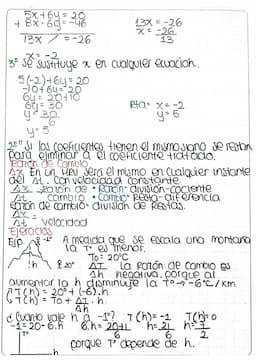 5x+6y=20
+ 8x-6y=-46
13x / =-26
13x=-26
x=-26
13
x=-2
3º Se sustituye x en cualquier ecuación.
5(-2)+6y=20
-10+6y=20
6y=20+10
6y=30
y=30
6
y=5
Rta= x=-2
y=5
Si los coeficientes tienen el mismo signo se restan
para eliminar a el coeficiente tratado.
Razón de cambio
Δx En un MRU será el mismo en cualquier instante
Δt con velocidad constante.
Δx razón de • Razón= división-cociente
Δt cambio • Cambio= Resta-diferencia
Razón de cambio= división de Restas.
Δx =
Δt velocidad
Ejercicios
Ejp. -1º A medida que se escala una montaña
la Tº es menor.
h 20º To=20ºC
ΔT La razón de cambio es
Δh negativa, porque al
aumentar la h disminuye la Tº → -6ºC/Km
T(h)=20º+(-6).h
T(h)=To+ΔT.h
Δh
¿Cuánto vale h a -1º? T(h)=-1 T(h)=0
-1=20-6.h 6.h=20+1 h=21 h=7
6 6 2
Tº porque Tº depende de h.
h